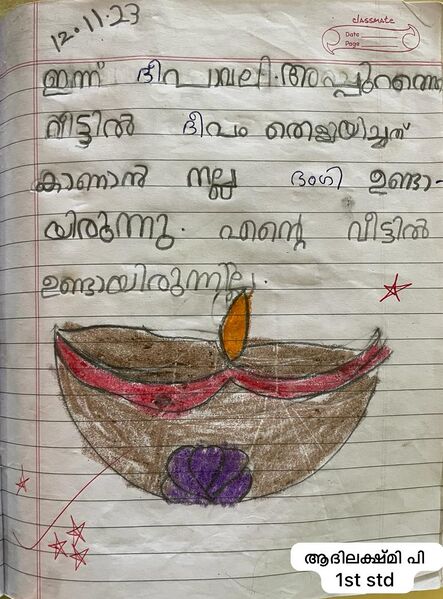 12.11.23
classmate
Date
Page
ഇന്ന് ദീപാവലി. അപ്പുറത്തെ
വീട്ടിൽ ദീപം തെളിയിച്ചത്
കാണാൻ നല്ല ഭംഗി ഉണ്ടാ-
യിരുന്നു. എന്റെ വീട്ടിൽ
ഉണ്ടായിരുന്നില്ല.
ആദിലക്ഷ്മി പി
1st std